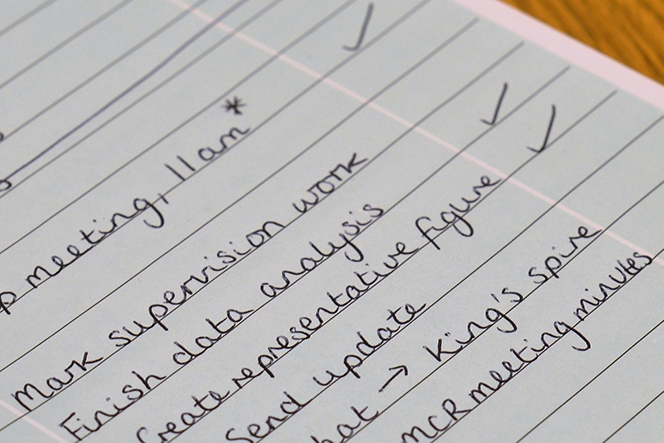 meeting, 11am*
Mark supervision work
Finish data analysis
Create representative figure
Send update
→ King's spire
MCR meeting minutes